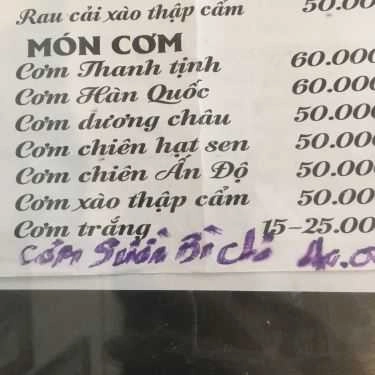 Rau cải xào thập cẩm 50.00
MÓN CƠM
Cơm Thanh tịnh 60.000
Cơm Hàn Quốc 60.000
Cơm dương châu 50.000
Cơm chiên hạt sen 50.000
Cơm chiên Ấn Độ 50.000
Cơm xào thập cẩm 50.000
Cơm trắng 15-25.00
Cơm Sườn Bì Chả 40.0